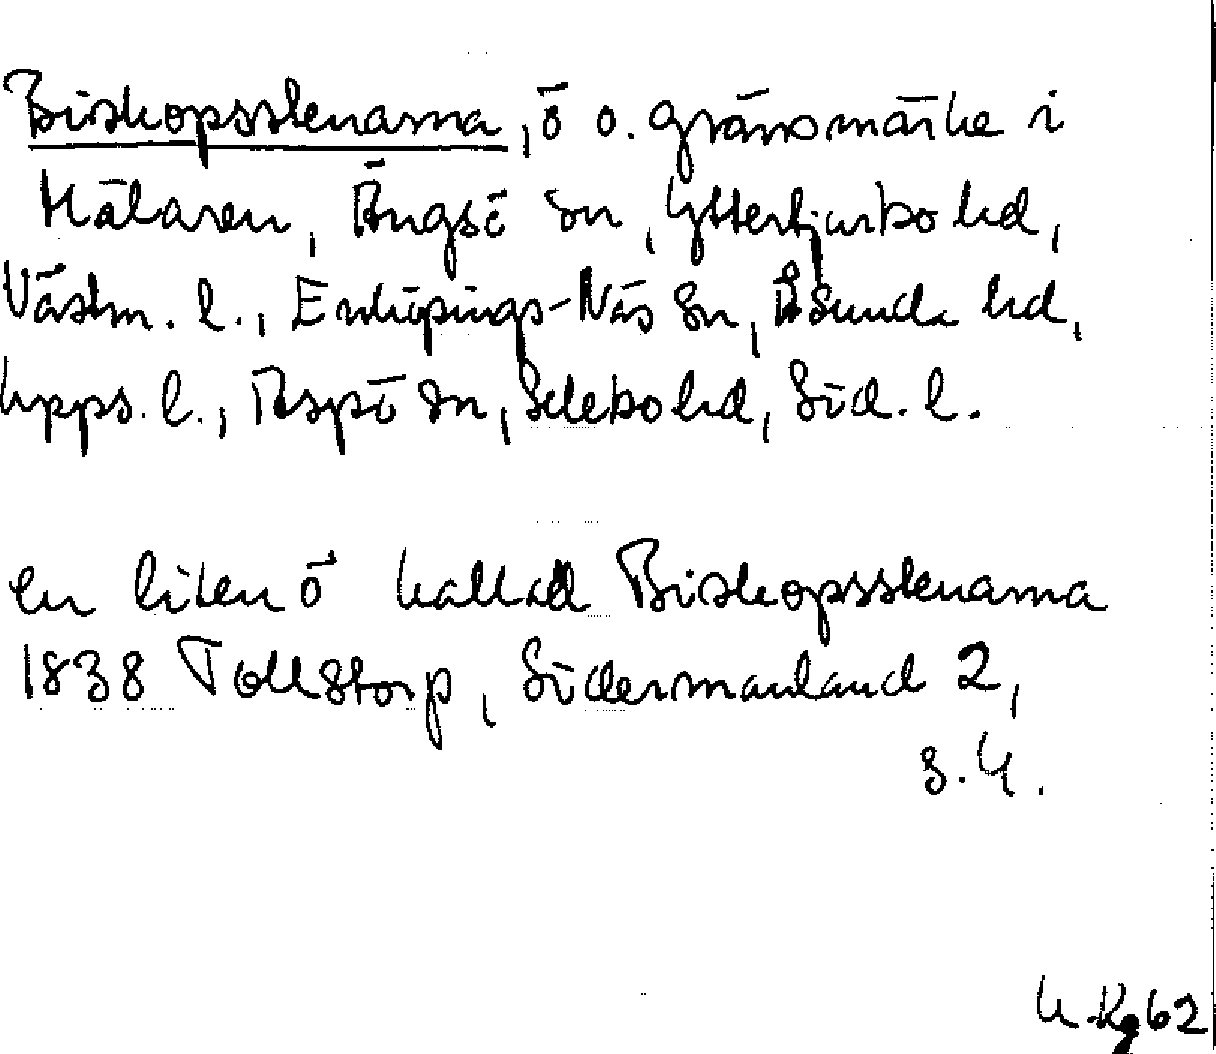 Biskopsstenarna, ö o. gränsmärke i
Mälaren, Ängsö sn, Yttertjurbo hd,
Västm. l., Enköpings-Näs sn, Åsunda hd,
Upps. l., Aspö sn, Selebo hd, Söd. l.
en liten ö kallad Biskopsstenarna
1838 Tollstorp, Södermanland 2,
s. 4.
62